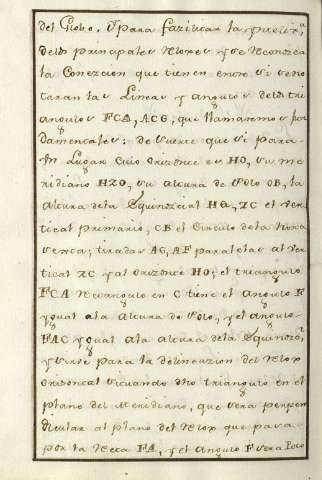 del Globo. Y para facilitar la Inteligª
delos principales Reloxes y se Reconozca
la Conexcion que tienen entre si seno
taran las Lineas y angulos delos tri
angulos FCA, ACG; que llamaremos fun
damentales: de suerte que si para
Un Lugar cuio Orizonte es HO, su me
ridiano HZO, su altura de Polo OB, la
altura dela Equinoccial HQ, ZC el ver
tical primario, CB el Circulo dela hora
sexta; tiradas AG, AF paralelas al ver
tical ZC y al orizonte HO; el triangulo
FCA Rectangulo en C tiene el angulo F
ygual ala altura de Polo, y el angulo
FAC ygual ala altura dela Equinozl
y sirve para la delineazion del Relox
orizontal situando dho triangulo en el
plano del Meridiano, que sera perpen
dicular al plano del Relox que pasa
por la Recta FA, y el angulo F sera Polo